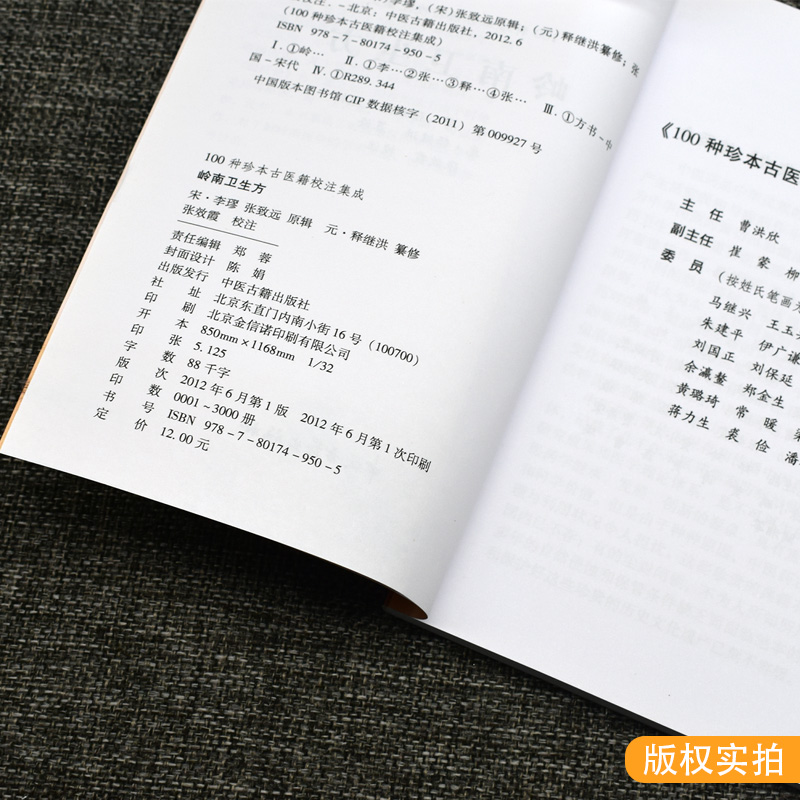 李璆,(宋)张致远原辑;(元)释继洪纂修;张
校注.-北京:中医古籍出版社,2012.6
(100种珍本古医籍校注集成)
ISBN 978-7-80174-950-5
Ⅰ.①岭… Ⅱ.①李…②张…③释…④张… Ⅲ.①方书-中
国-宋代 Ⅳ.①R289.344
中国版本图书馆CIP数据核字(2011)第009927号
100种珍本古医籍校注集成
岭南卫生方
宋·李璆 张致远 原辑 元·释继洪 纂修
张效霞 校注
责任编辑 郑蓉
封面设计 陈娟
出版发行 中医古籍出版社
社址 北京东直门内南小街16号(100700)
印刷 北京金信诺印刷有限公司
开本 850mm×1168mm 1/32
印张 5.125
字数 88千字
版次 2012年6月第1版 2012年6月第1次印刷
印数 0001~3000册
书号 ISBN 978-7-80174-950-5
定价 12.00元
《100种珍本古医
主任 曹洪欣
副主任 崔蒙 柳
委员 (按姓氏笔画
马继兴 王玉
朱建平 伊广谦
刘国正 刘保延
余瀛鳌 郑金生
黄璐琦 常暖 梁
蒋力生 裘俭 潘
版权实拍